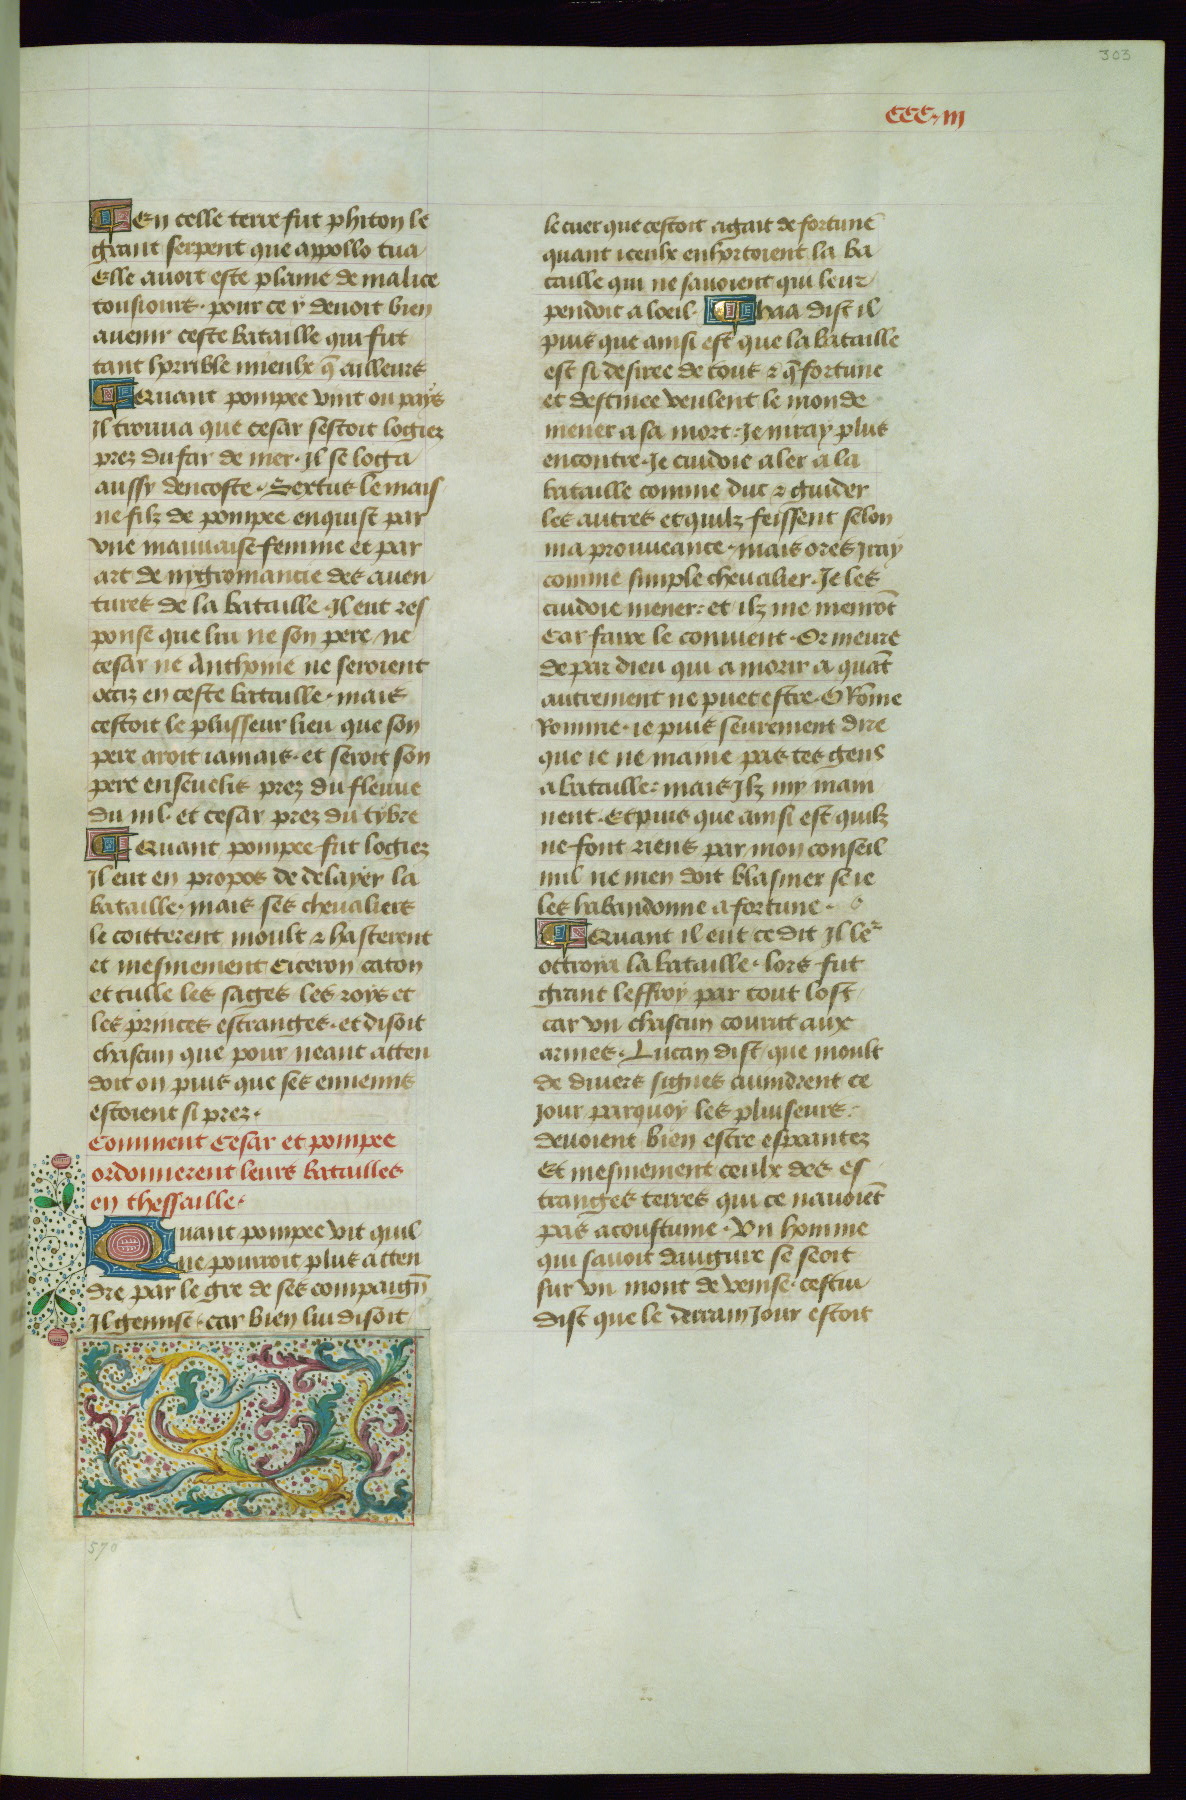 303
CCC, iii
En celle terre fut phiton le
grant serpent que appollo tua
Elle auoit este plaine de malice
tousiours · pour ce y deuoit bien
auenir ceste bataille qui fut
tant horrible mieulx q̃ ailleurs
Quant pompee vint ou pays
Il trouua que cesar sestoit logiez
prez du far de mer · Il se loga
aussy dencoste · Sextus le mais
ne filz de pompee enquist par
vne mauuaise femme et par
art de nygromancie des auen
tures de la bataille · Il eut res
ponse que lui ne son pere ne
cesar ne Anthoine ne seroient
occiz en ceste bataille · mais
cestoit le plus seur lieu que son
pere aroit iamais · et seroit son
pere enseuelis prez du fleuue
du nil · et cesar prez du tybre
Quant pompee fut logiez
Il eut en propos de delayer la
bataille, mais ses cheualiers
le coitterent moult ⁊ hasterent
et mesmement Ciceron caton
et tulle les sages les roys et
les princes estranges · et disoit
chascun que pour neant atten
doit on puis que ses ennemis
estoient si prez ·
Comment Cesar et pompee
ordonnerent leurs batailles
en thessaille ·
Quant pompee vit quil
ne pourroit plus atten
dre par le gre de ses compaign̄
Il gemist · car bien lui disoit
570
le cuer que cestoit agait de fortune
quant iceulx enhortoient la ba
taille qui ne sauoient qui leur
pendoit a loeil · haa dist il
puis que ainsi est que la bataille
est si desiree de tous ⁊ q̃ fortune
et destinee veulent le monde
mener a sa mort · Je niray plus
encontre · Je cuidoie aler a la
bataille comme duc ⁊ guider
les autres et quilz feissent selon
ma prouueance · mais ores Iray
comme simple cheualier · Je les
cuidoie mener : et ilz me menrōt
Car faire le conuient · Or meure
de par dieu qui a morir a quāt
autrement ne puet estre · O Rōme
Romme · ie puis seurement dire
que ie ne maine pas tes gens
a bataille : mais Ilz my main
nent · Et puis que ainsi est quilz
ne font riens par mon conseil
nul ne men doit blasmer se ie
les habandonne a fortune ·
Quant il eut ce dit Il leʳ
ottroia la bataille · lors fut
grant leffroy par tout lost
car vn chascun courut aux
armes · Lucan dist que moult
de diuers signes auindrent ce
Jour parquoy les pluiseurs
deuoient bien estre espantez
Et mesmement ceulx des es
tranges terres qui ce nauoiēt
pas acoustume · Vn homme
qui sauoit daugure se seoit
sur vn mont de venise · cestui
dist que le derrain Jour estoit